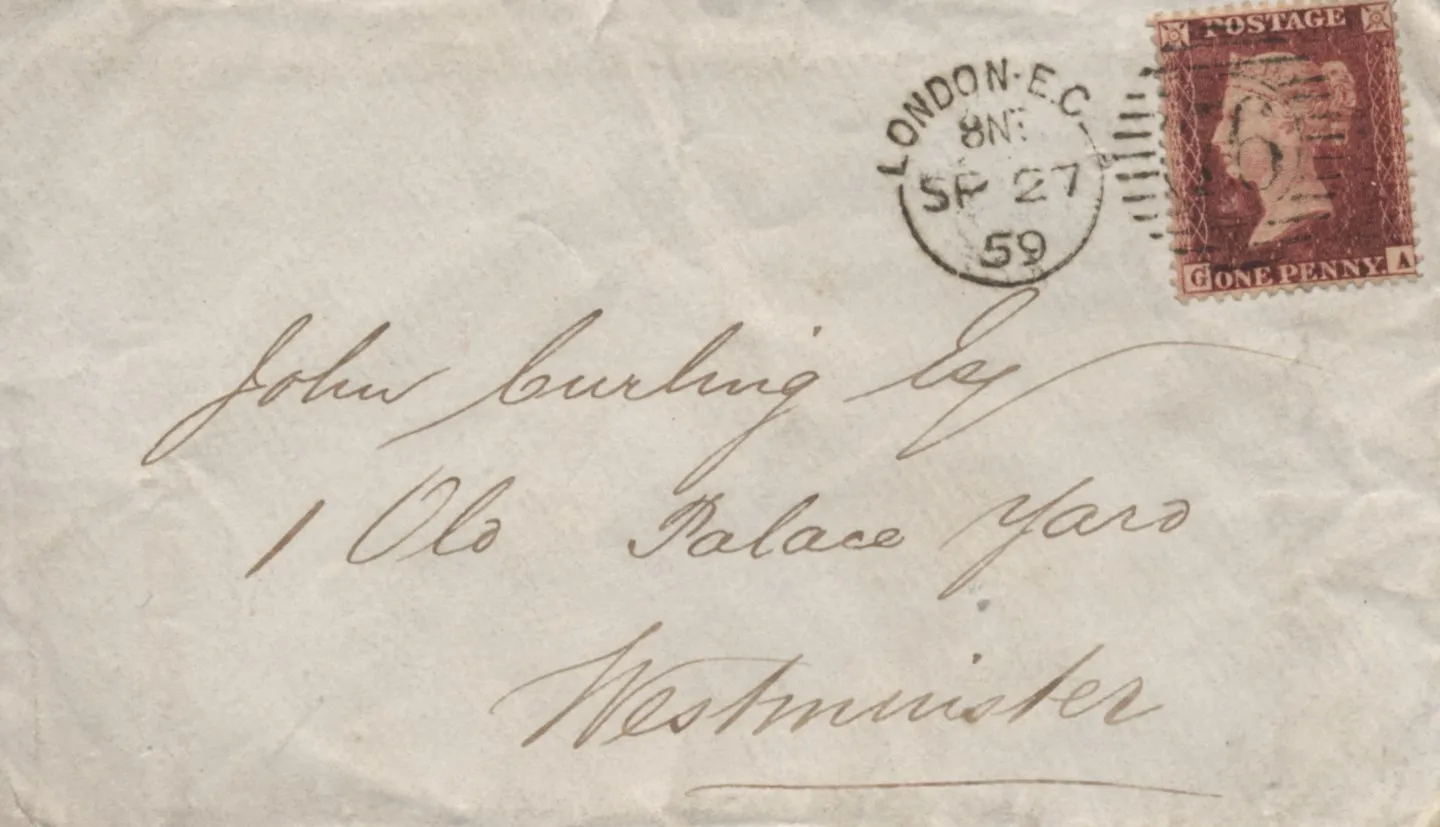 POSTAGE
LONDON·E.C
8NT
SP 27
59
6
G ONE PENNY. A
John Curling Esq
1 Old Palace Yard
Westminster